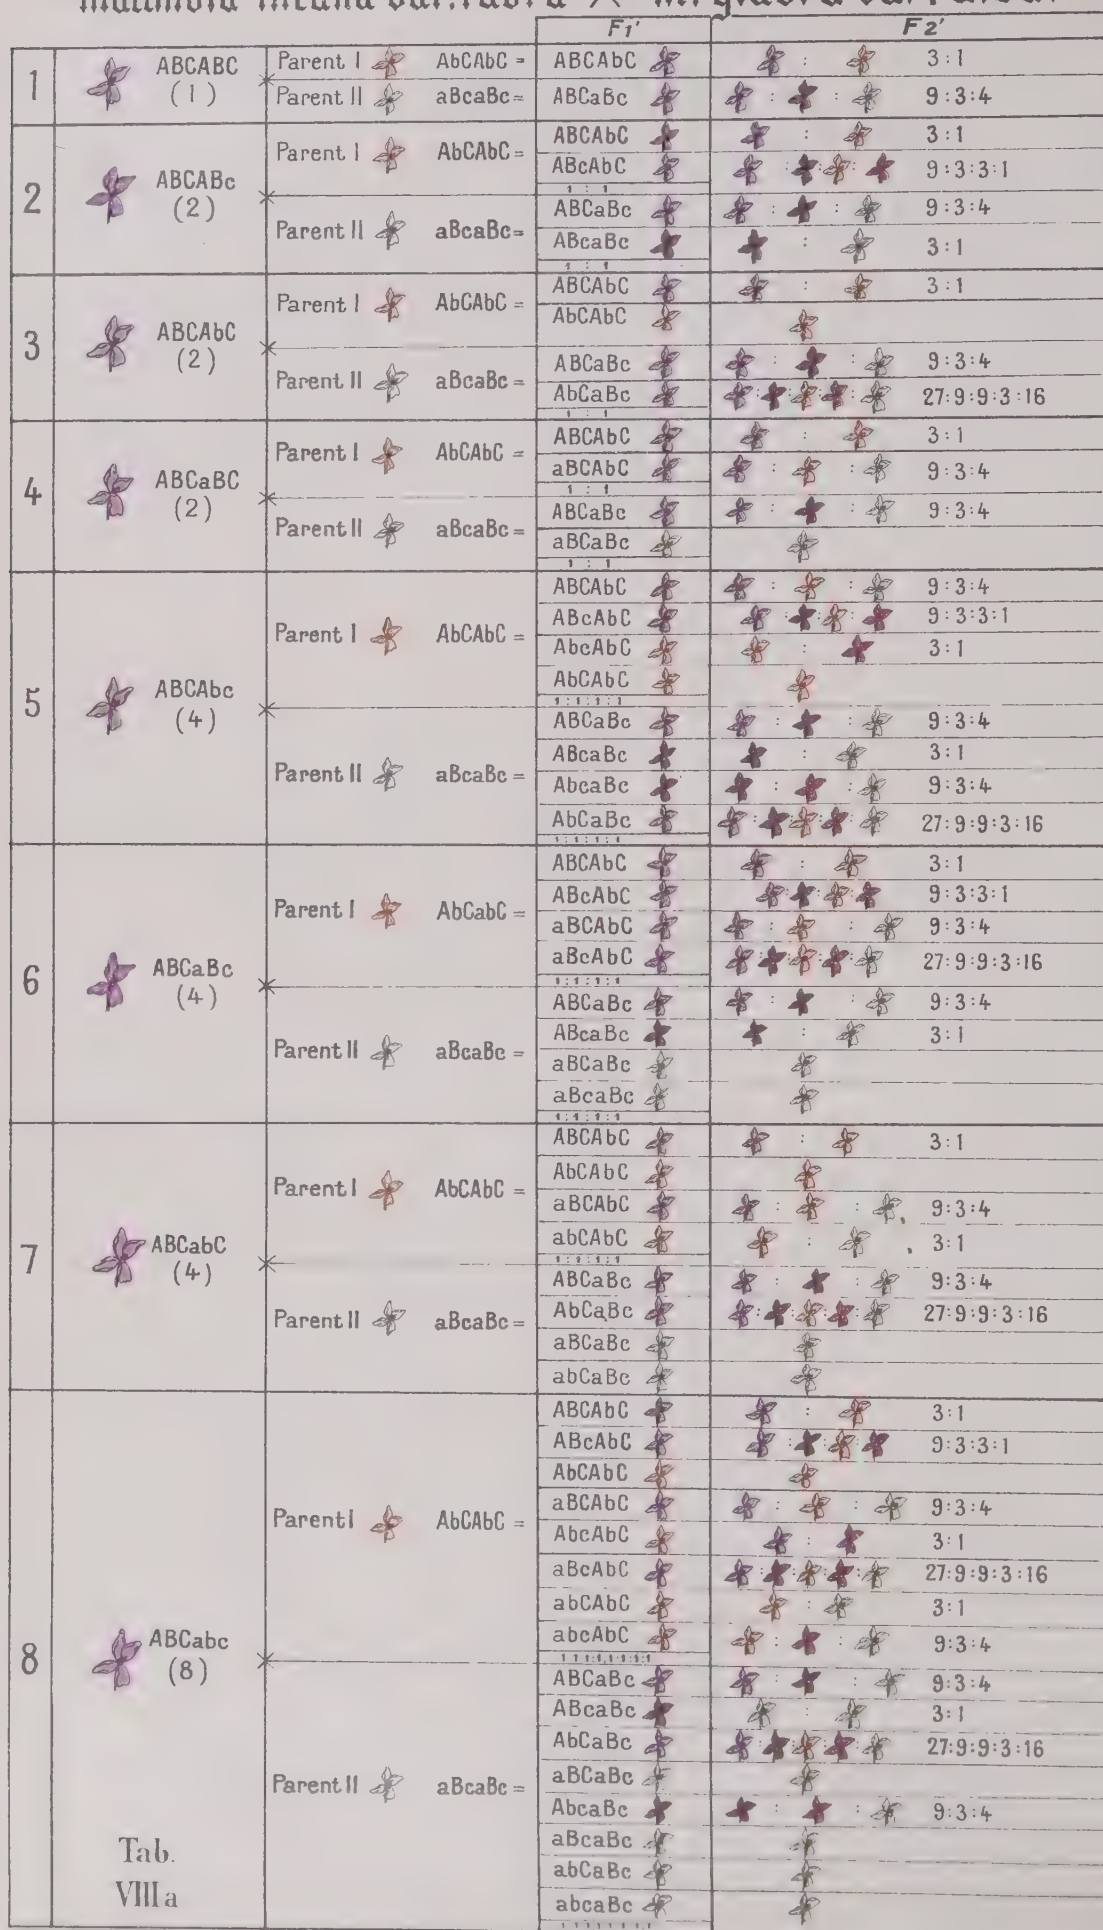 F1' F2'
1 ABCABC (1) Parent I AbCAbC = ABCAbC : 3:1
Parent II aBcaBc= ABCaBc : : 9:3:4
2 ABCABc (2) Parent I AbCAbC = ABCAbC : 3:1
ABcAbC 9:3:3:1
1 : 1
Parent II aBcaBc= ABCaBc : : 9:3:4
ABcaBc : 3:1
1 : 1
3 ABCAbC (2) Parent I AbCAbC = ABCAbC : 3:1
AbCAbC
Parent II aBcaBc = ABCaBc : : 9:3:4
AbCaBc 27:9:9:3:16
1 : 1
4 ABCaBC (2) Parent I AbCAbC = ABCAbC : 3:1
aBCAbC : : 9:3:4
1 : 1
Parent II aBcaBc = ABCaBc : : 9:3:4
aBCaBc
1 : 1
5 ABCAbc (4) Parent I AbCAbC = ABCAbC : : 9:3:4
ABcAbC 9:3:3:1
AbcAbC : 3:1
AbCAbC
1:1:1:1
Parent II aBcaBc = ABCaBc : : 9:3:4
ABcaBc : 3:1
AbcaBc : : 9:3:4
AbCaBc 27:9:9:3:16
1:1:1:1
6 ABCaBc (4) Parent I AbCabC = ABCAbC : 3:1
ABcAbC 9:3:3:1
aBCAbC : : 9:3:4
aBcAbC 27:9:9:3:16
1:1:1:1
Parent II aBcaBc = ABCaBc : : 9:3:4
ABcaBc : 3:1
aBCaBc
aBcaBc
1:1:1:1
7 ABCabC (4) Parent I AbCAbC = ABCAbC : 3:1
AbCAbC
aBCAbC : : 9:3:4
abCAbC : 3:1
1:1:1:1
Parent II aBcaBc = ABCaBc : : 9:3:4
AbCaBc 27:9:9:3:16
aBCaBc
abCaBc
8 ABCabc (8) Parent I AbCAbC = ABCAbC : 3:1
ABcAbC 9:3:3:1
AbCAbC
aBCAbC : : 9:3:4
AbcAbC : 3:1
aBcAbC 27:9:9:3:16
abCAbC : 3:1
abcAbC : : 9:3:4
Parent II aBcaBc = ABCaBc : : 9:3:4
ABcaBc : 3:1
AbCaBc 27:9:9:3:16
aBCaBc
AbcaBc : : 9:3:4
aBcaBc
abCaBc
abcaBc
Tab.
VIII a